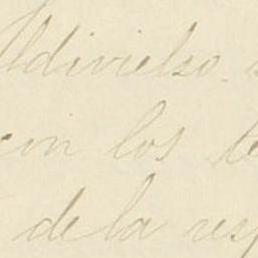 Valdivielso
con los
de la resp